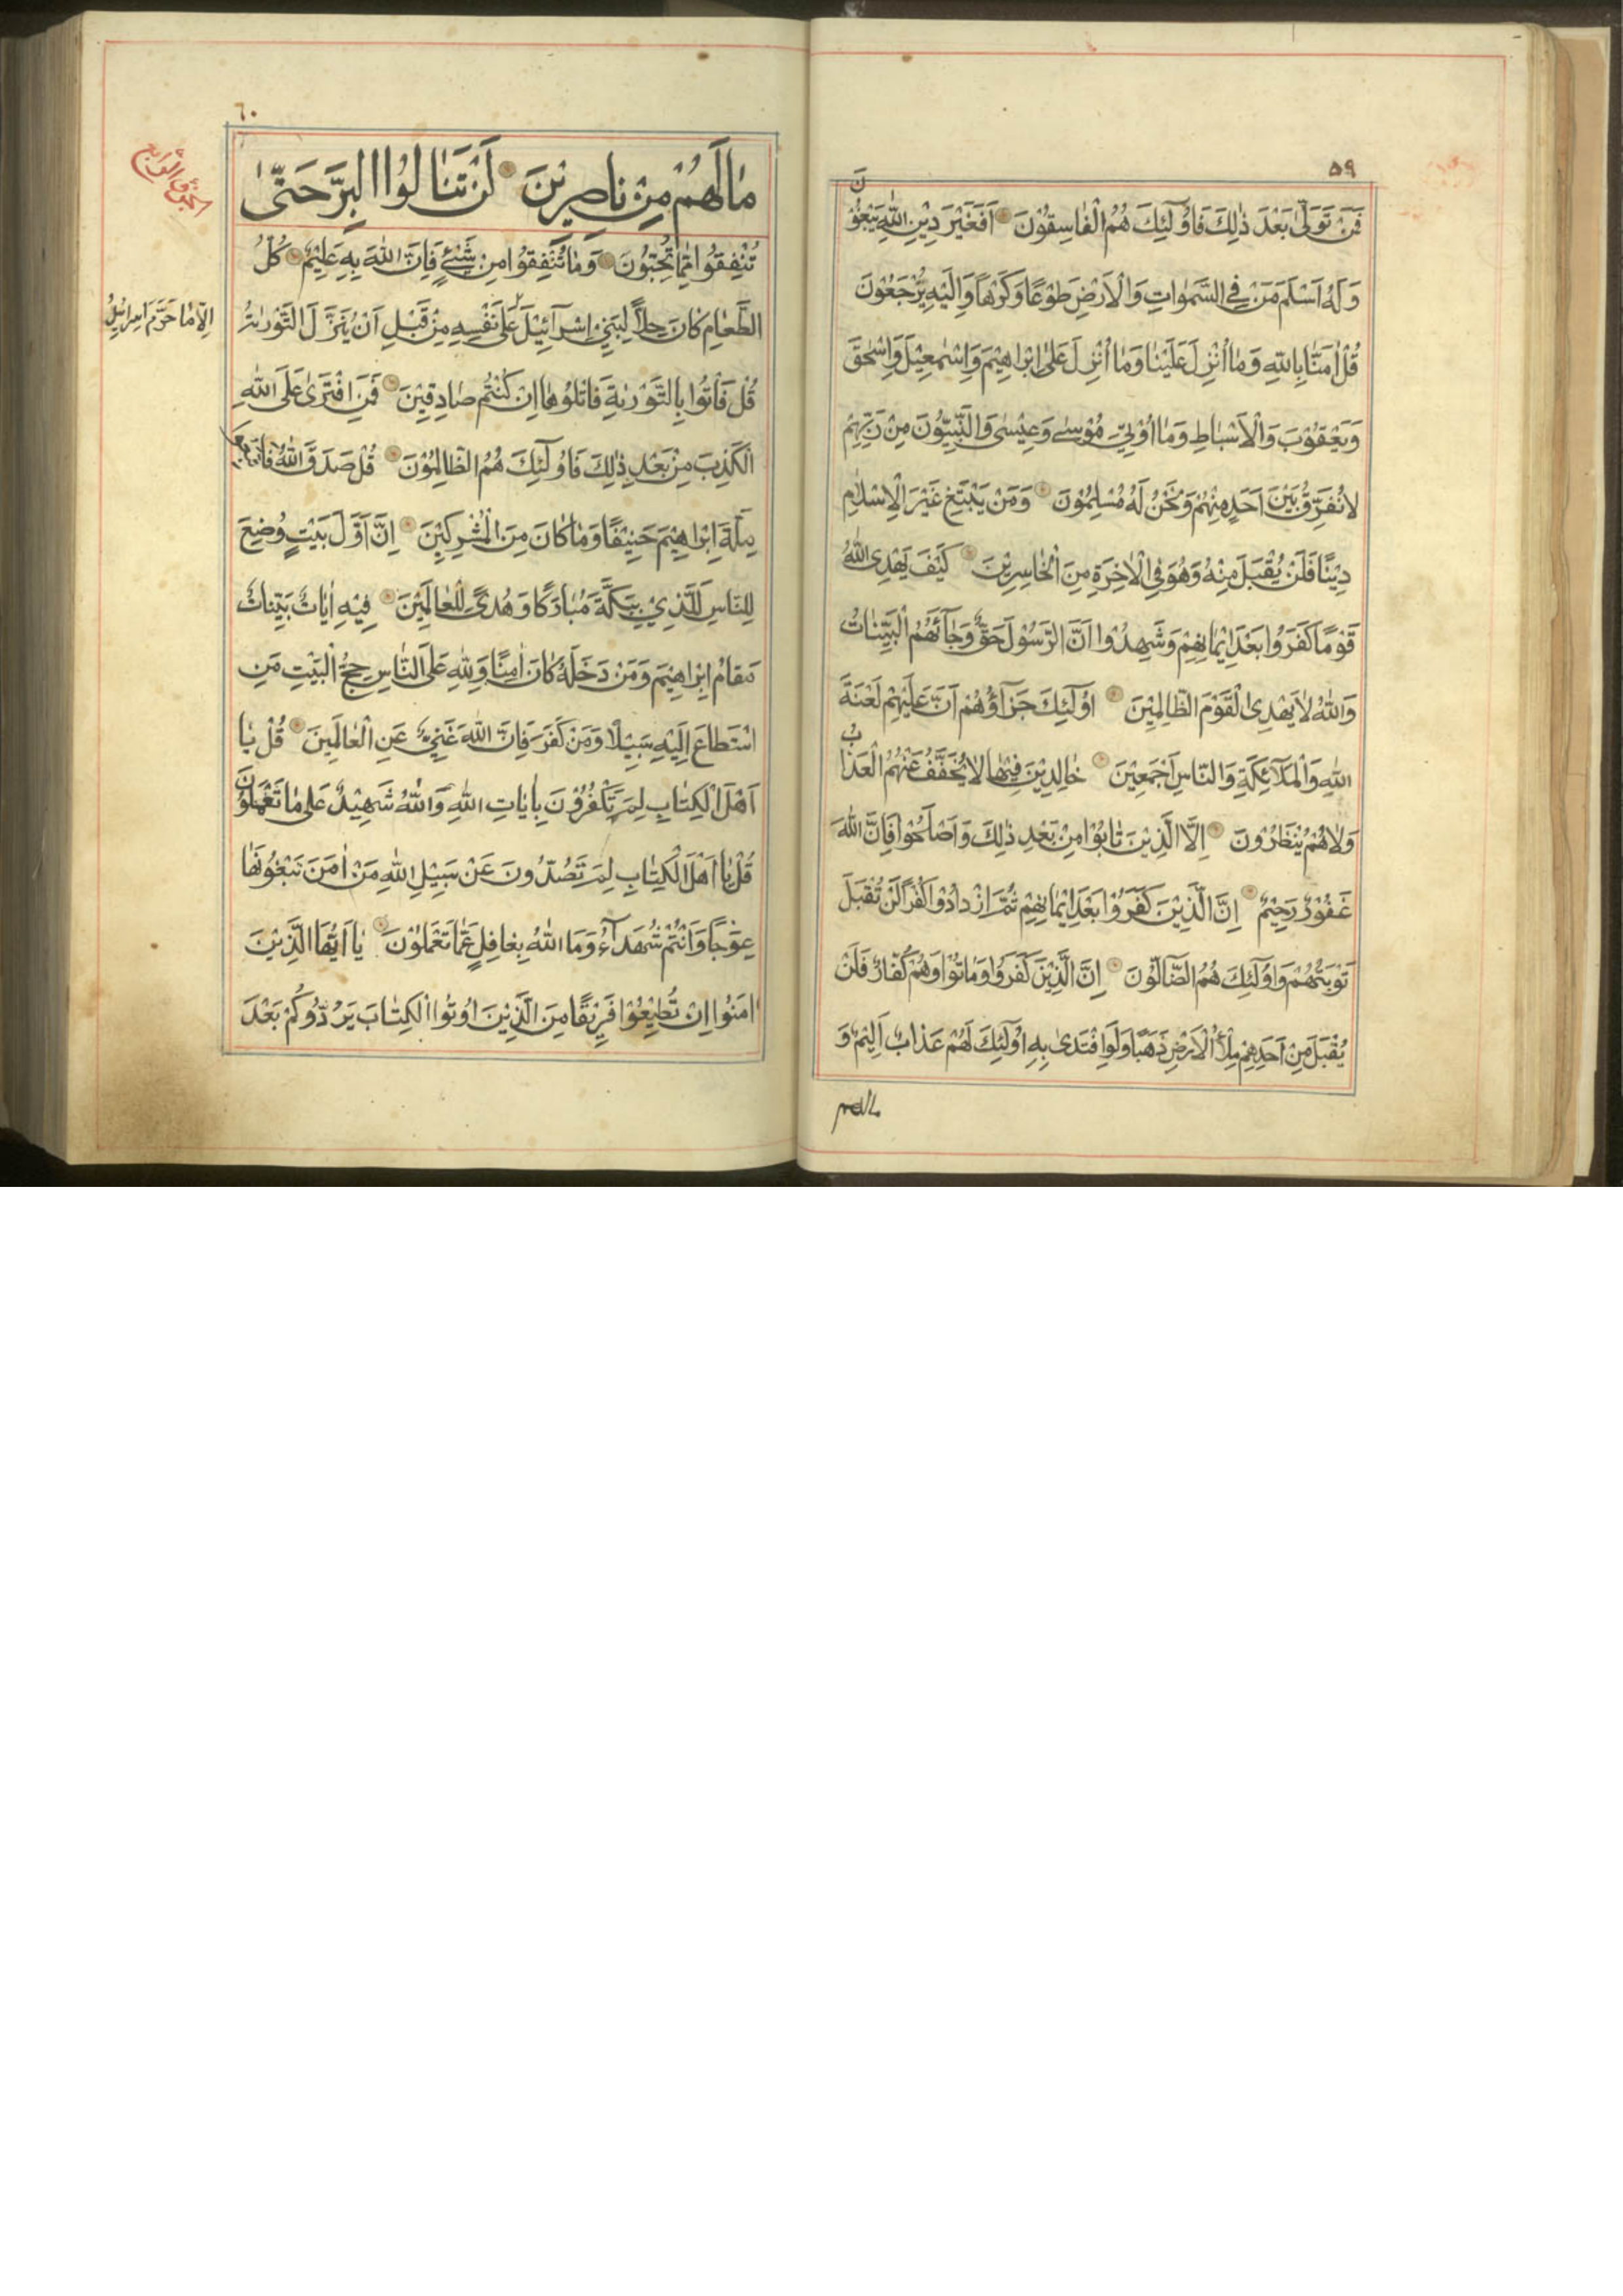 ٥٩
فَمَنْ تَوَلّٰى بَعْدَ ذٰلِكَ فَاُولٰٓئِكَ هُمُ الْفٰاسِقُوْنَ اَفَغَيْرَ دِيْنِ اللّٰهِ يَبْغُوْنَ
وَلَهُ اَسْلَمَ مَنْ فِي السَّمٰوٰاتِ وَالْاَرْضِ طَوْعًا وَكَرْهًا وَاِلَيْهِ يُرْجَعُوْنَ
قُلْ اٰمَنّٰا بِاللّٰهِ وَمٰا اُنْزِلَ عَلَيْنٰا وَمٰا اُنْزِلَ عَلىٰ اِبْرٰاهِيْمَ وَاِسْمٰعِيْلَ وَاِسْحٰقَ
وَيَعْقُوْبَ وَالْاَسْبٰاطِ وَمٰا اُوْتِيَ مُوْسٰى وَعِيْسٰى وَالنَّبِيُّوْنَ مِنْ رَبِّهِمْ
لٰا نُفَرِّقُ بَيْنَ اَحَدٍ مِنْهُمْ وَنَحْنُ لَهُ مُسْلِمُوْنَ وَمَنْ يَبْتَغِ غَيْرَ الْاِسْلٰامِ
دِيْنًا فَلَنْ يُقْبَلَ مِنْهُ وَهُوَ فِي الْاٰخِرَةِ مِنَ الْخٰاسِرِيْنَ كَيْفَ يَهْدِي اللّٰهُ
قَوْمًا كَفَرُوا بَعْدَ اِيْمٰانِهِمْ وَشَهِدُوْا اَنَّ الرَّسُوْلَ حَقٌّ وَجٰآءَهُمُ الْبَيِّنٰاتُ
وَاللّٰهُ لٰا يَهْدِي الْقَوْمَ الظّٰالِمِيْنَ اُولٰٓئِكَ جَزٰآؤُهُمْ اَنَّ عَلَيْهِمْ لَعْنَةَ
اللّٰهِ وَالْمَلٰٓائِكَةِ وَالنّٰاسِ اَجْمَعِيْنَ خٰالِدِيْنَ فِيْهٰا لٰا يُخَفَّفُ عَنْهُمُ الْعَذٰابُ
وَلٰا هُمْ يُنْظَرُوْنَ اِلَّا الَّذِيْنَ تٰابُوْا مِنْ بَعْدِ ذٰلِكَ وَاَصْلَحُوْا فَاِنَّ اللّٰهَ
غَفُوْرٌ رَحِيْمٌ اِنَّ الَّذِيْنَ كَفَرُوْا بَعْدَ اِيْمٰانِهِمْ ثُمَّ ازْدٰادُوْا كُفْرًا لَنْ تُقْبَلَ
تَوْبَتُهُمْ وَاُولٰٓئِكَ هُمُ الضّٰٓالُّوْنَ اِنَّ الَّذِيْنَ كَفَرُوْا وَمٰاتُوْا وَهُمْ كُفّٰارٌ فَلَنْ
يُقْبَلَ مِنْ اَحَدِهِمْ مِلْءُ الْاَرْضِ ذَهَبًا وَلَوِ افْتَدىٰ بِهِ اُولٰٓئِكَ لَهُمْ عَذٰابٌ اَلِيْمٌ وَ
مالهم
٦٠
مٰا لَهُمْ مِنْ نٰاصِرِيْنَ لَنْ تَنٰالُوْا الْبِرَّ حَتّٰى
تُنْفِقُوْا مِمّٰا تُحِبُّوْنَ وَمٰا تُنْفِقُوْا مِنْ شَيْءٍ فَاِنَّ اللّٰهَ بِهِ عَلِيْمٌ كُلُّ
الطَّعٰامِ كٰانَ حِلًّا لِبَنِيْ اِسْرٰآئِيْلَ عَلىٰ نَفْسِهِ مِنْ قَبْلِ اَنْ يُنَزَّلَ التَّوْرٰيةُ
اِلّٰا مٰا حَرَّمَ اِسْرٰائِيْلُ
قُلْ فَأْتُوا بِالتَّوْرٰيةِ فَاتْلُوهٰا اِنْ كُنْتُمْ صٰادِقِيْنَ فَمَنِ افْتَرىٰ عَلَى اللّٰهِ
الْكَذِبَ مِنْ بَعْدِ ذٰلِكَ فَاُولٰٓئِكَ هُمُ الظّٰالِمُوْنَ قُلْ صَدَقَ اللّٰهُ فَاتَّبِعُوا
مِلَّةَ اِبْرٰاهِيْمَ حَنِيْفًا وَمٰا كٰانَ مِنَ الْمُشْرِكِيْنَ اِنَّ اَوَّلَ بَيْتٍ وُضِعَ
لِلنّٰاسِ لَلَّذِيْ بِبَكَّةَ مُبٰارَكًا وَهُدًى لِلْعٰالَمِيْنَ فِيْهِ اٰيٰاتٌ بَيِّنٰاتٌ
مَقٰامُ اِبْرٰاهِيْمَ وَمَنْ دَخَلَهُ كٰانَ اٰمِنًا وَلِلّٰهِ عَلَى النّٰاسِ حِجُّ الْبَيْتِ مَنِ
اسْتَطٰاعَ اِلَيْهِ سَبِيْلًا وَمَنْ كَفَرَ فَاِنَّ اللّٰهَ غَنِيٌّ عَنِ الْعٰالَمِيْنَ قُلْ يٰا
اَهْلَ الْكِتٰابِ لِمَ تَكْفُرُوْنَ بِاٰيٰاتِ اللّٰهِ وَاللّٰهُ شَهِيْدٌ عَلىٰ مٰا تَعْمَلُوْنَ
قُلْ يٰا اَهْلَ الْكِتٰابِ لِمَ تَصُدُّوْنَ عَنْ سَبِيْلِ اللّٰهِ مَنْ اٰمَنَ تَبْغُوْنَهٰا
عِوَجًا وَاَنْتُمْ شُهَدٰآءُ وَمَا اللّٰهُ بِغٰافِلٍ عَمّٰا تَعْمَلُوْنَ يٰا اَيُّهَا الَّذِيْنَ
اٰمَنُوا اِنْ تُطِيْعُوْا فَرِيْقًا مِنَ الَّذِيْنَ اُوتُوا الْكِتٰابَ يَرُدُّوكُمْ بَعْدَ